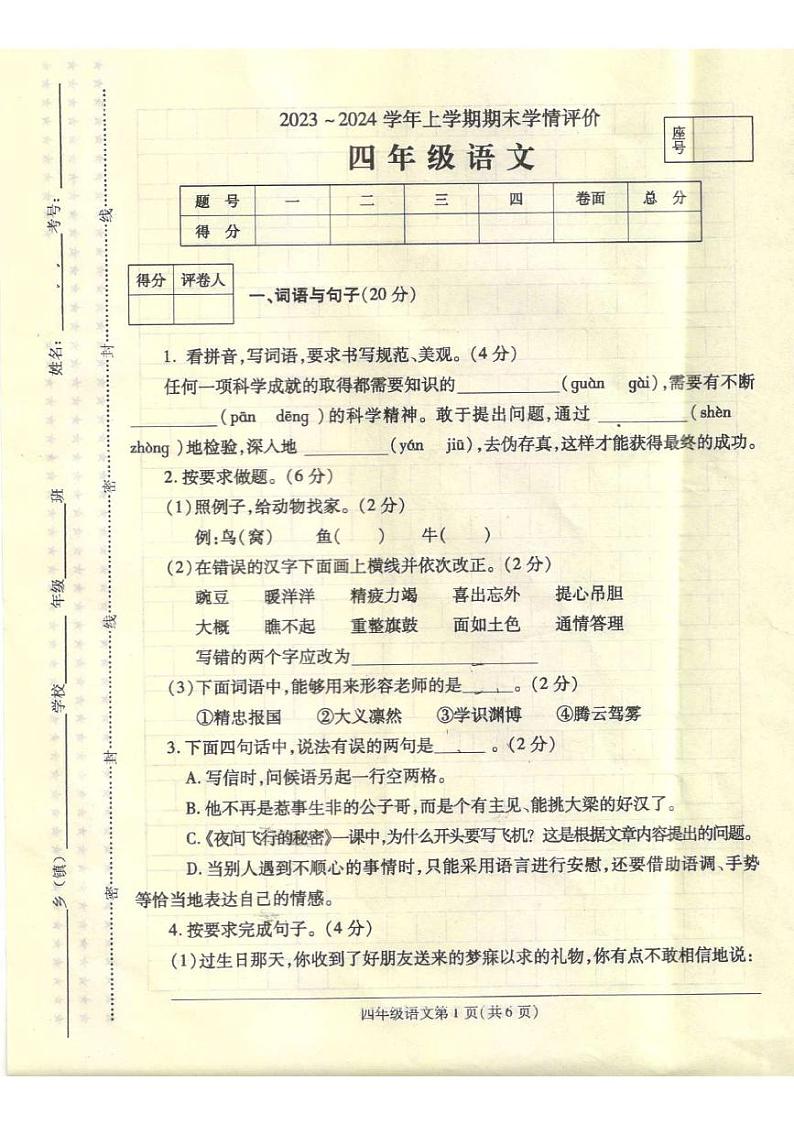 2023～2024 学年上学期期末学情评价
四年级语文
座号
题 号 一 二 三 四 卷面 总 分
得 分
得分 评卷人
一、词语与句子(20 分)
1. 看拼音,写词语,要求书写规范、美观。(4 分)
任何一项科学成就的取得都需要知识的__________(guàn gài),需要有不断
__________(pān dēng )的科学精神。敢于提出问题,通过 __________(shèn
zhòng )地检验,深入地 __________(yán jiū),去伪存真,这样才能获得最终的成功。
2. 按要求做题。(6 分)
(1)照例子,给动物找家。(2 分)
例:鸟(窝) 鱼( ) 牛( )
(2)在错误的汉字下面画上横线并依次改正。(2 分)
豌豆 暖洋洋 精疲力竭 喜出忘外 提心吊胆
大概 瞧不起 重整旗鼓 面如土色 通情答理
写错的两个字应改为____________________
(3)下面词语中,能够用来形容老师的是______。(2 分)
①精忠报国 ②大义凛然 ③学识渊博 ④腾云驾雾
3. 下面四句话中,说法有误的两句是______。(2 分)
A. 写信时,问候语另起一行空两格。
B. 他不再是惹事生非的公子哥,而是个有主见、能挑大梁的好汉了。
C.《夜间飞行的秘密》一课中,为什么开头要写飞机? 这是根据文章内容提出的问题。
D. 当别人遇到不顺心的事情时,只能采用语言进行安慰,还要借助语调、手势
等恰当地表达自己的情感。
4. 按要求完成句子。(4 分)
(1)过生日那天,你收到了好朋友送来的梦寐以求的礼物,你有点不敢相信地说:
四年级语文第 1 页(共 6 页)
乡(镇)__________学校______年级______班 姓名:__________考号:__________
密 封 线 密 封 线